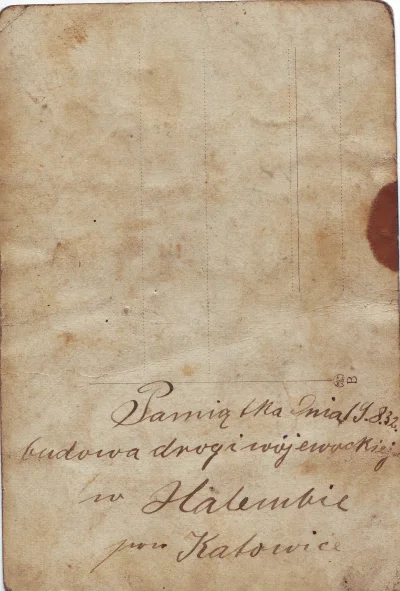 Pamiątka Dnia 19.8.32.
budowa drogi wojewockiej
w Halembie
pow Katowice
B